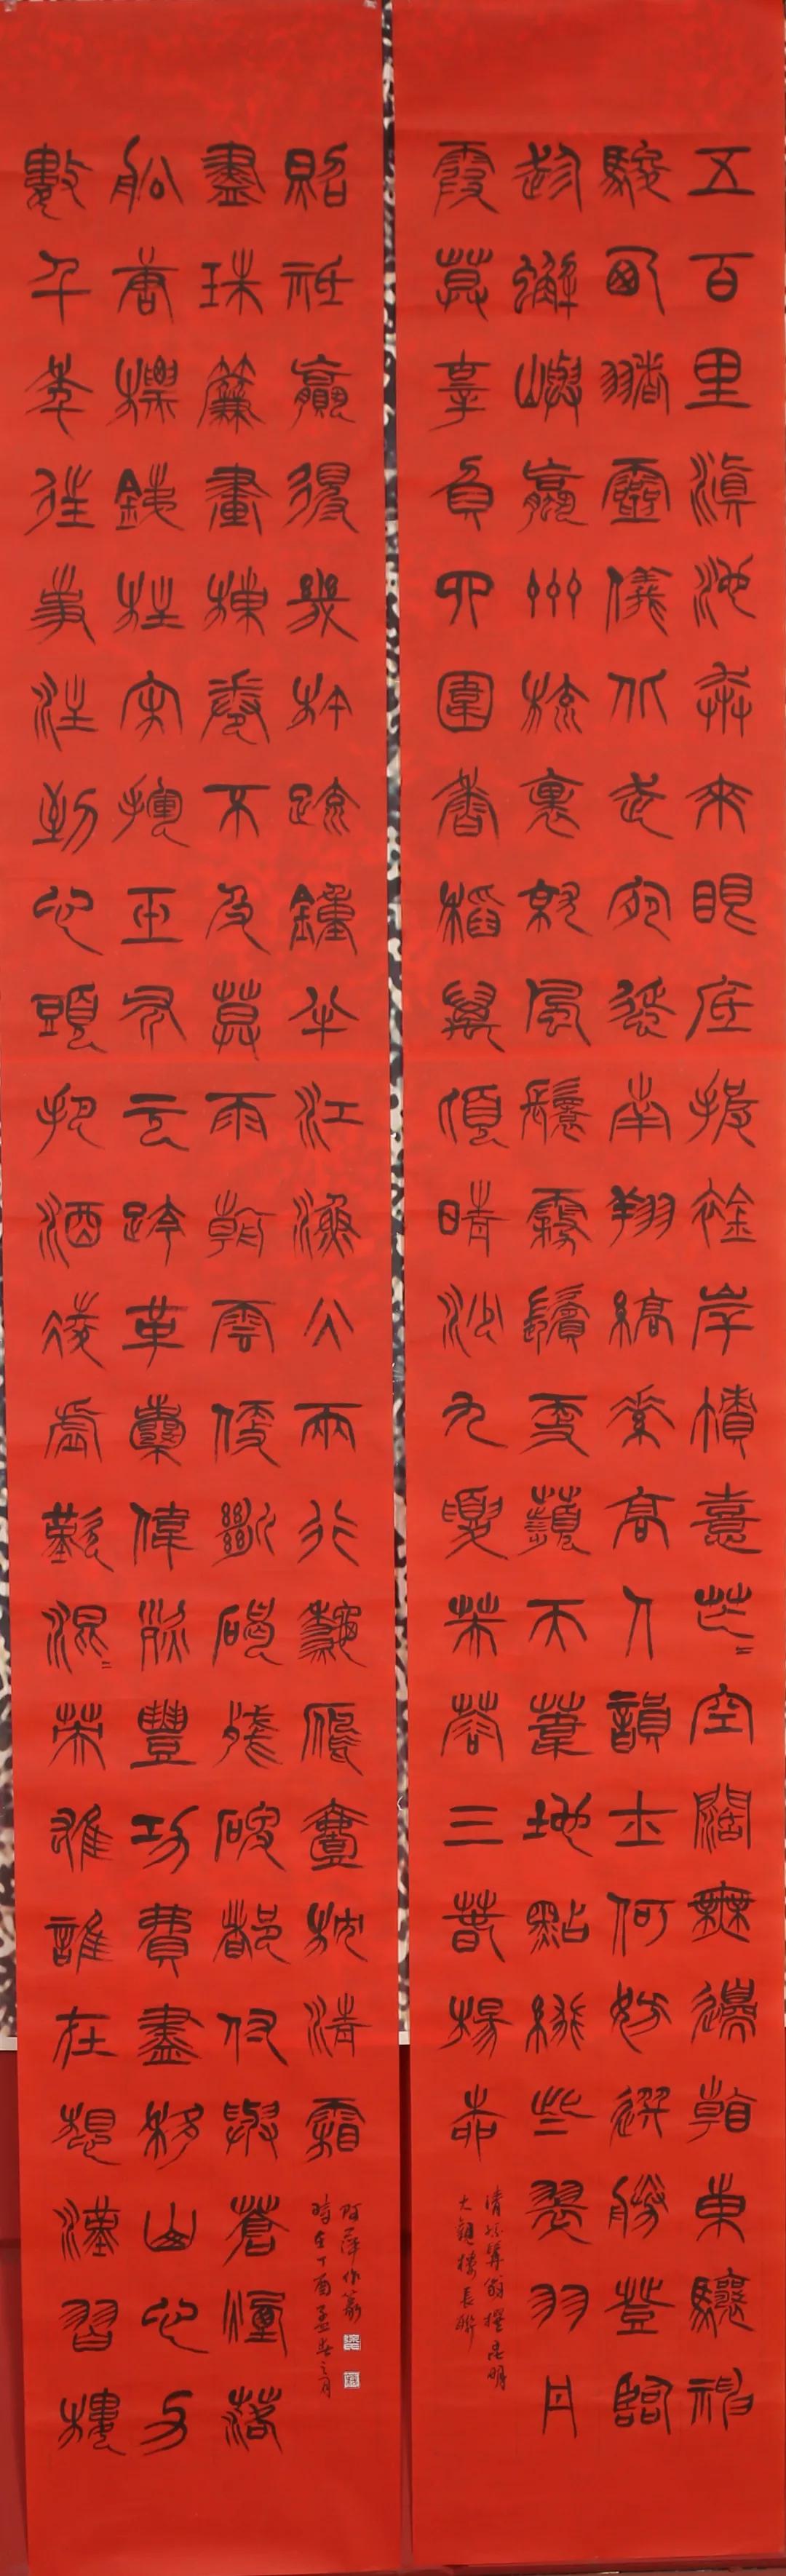 五百里滇池奔來眼底披襟岸幘喜茫〻空闊無邊看東驤神
駿西翥靈儀北走蜿蜒南翔縞素高人韻士何妨選勝登臨
趁蟹嶼蠃州梳裹就風鬟霧鬢更蘋天葦地點綴些翠羽丹
霞莫辜負四圍香稻萬頃晴沙九夏芙蓉三春楊柳
清孫髯翁撰昆明
大觀樓長聯
數千年往事注到心頭把酒凌虛歎滾〻英雄誰在想漢習樓
船唐標鐵柱宋揮玉斧元跨革囊偉烈豐功費盡移山心力
盡珠簾畫棟卷不及暮雨朝雲便斷碣殘碑都付與蒼煙落
照祗贏得幾杵疏鐘半江漁火兩行秋雁壹枕清霜
阿萍作篆
時在丁酉孟春之月